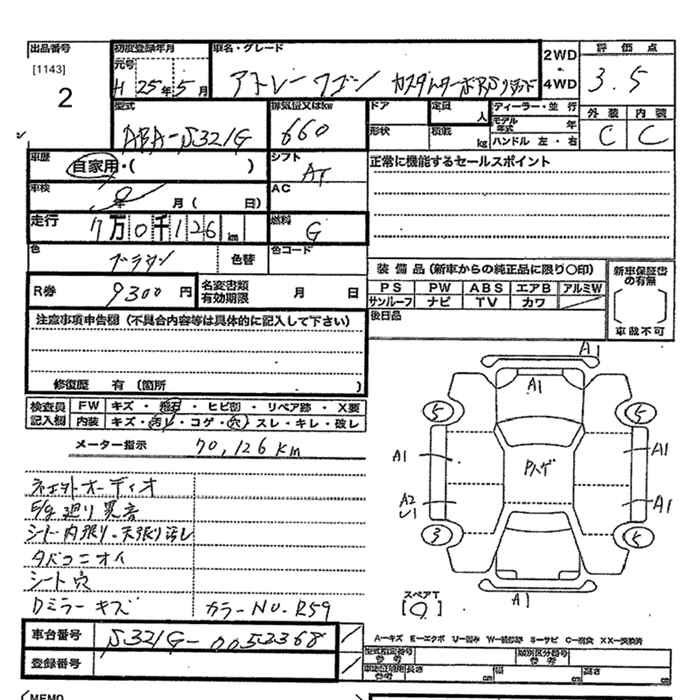 出品番号
[1143]
2
初度登録年月
元号
H 25年 5月
車名・グレード
アトレーワゴン カスタムターボRSリミテッド
2WD
4WD
評価点
3.5
外装 内装
C C
型式
ABA-S321G
排気量又はkw
660
ドア
形状
定員
人
積載
kg
ディーラー・並行
モデル年式 年
ハンドル 左・右
車歴
自家用・( )
シフト
AT
AC
正常に機能するセールスポイント
車検
年 月( 日)
走行
7万0千126km
燃料
G
色
ブラウン
色替
色コード
R券
9300円
名変書類有効期限 月 日
装備品(新車からの純正品に限り○印)
PS PW ABS エアB アルミW
サンルーフ ナビ TV カワ
後日品
新車保証書の有無
車載不可
注意事項申告欄(不具合内容等は具体的に記入して下さい)
修復歴 有(箇所 )
検査員記入欄
FW キズ・ ・ヒビ割・リペア跡・X要
内装 キズ・汚レ・コゲ・穴・スレ・キレ・破レ
メーター指示 70,126km
E/g廻り異音
シート内張り・天張り汚レ
タバコニオイ
シート穴
Dミラーキズ カラーNO.R59
A1
A1
5 5
A1 A1
A2 A1
3 5
A1
スペアT
車台番号 S321G-0052368
登録番号
A-キズ E-エクボ U-凹み W-補修跡 S-サビ C-腐食 XX-交換済
型式指定番号 参考
類別区分番号 参考
長さ cm 幅 cm 高さ cm
MEMO